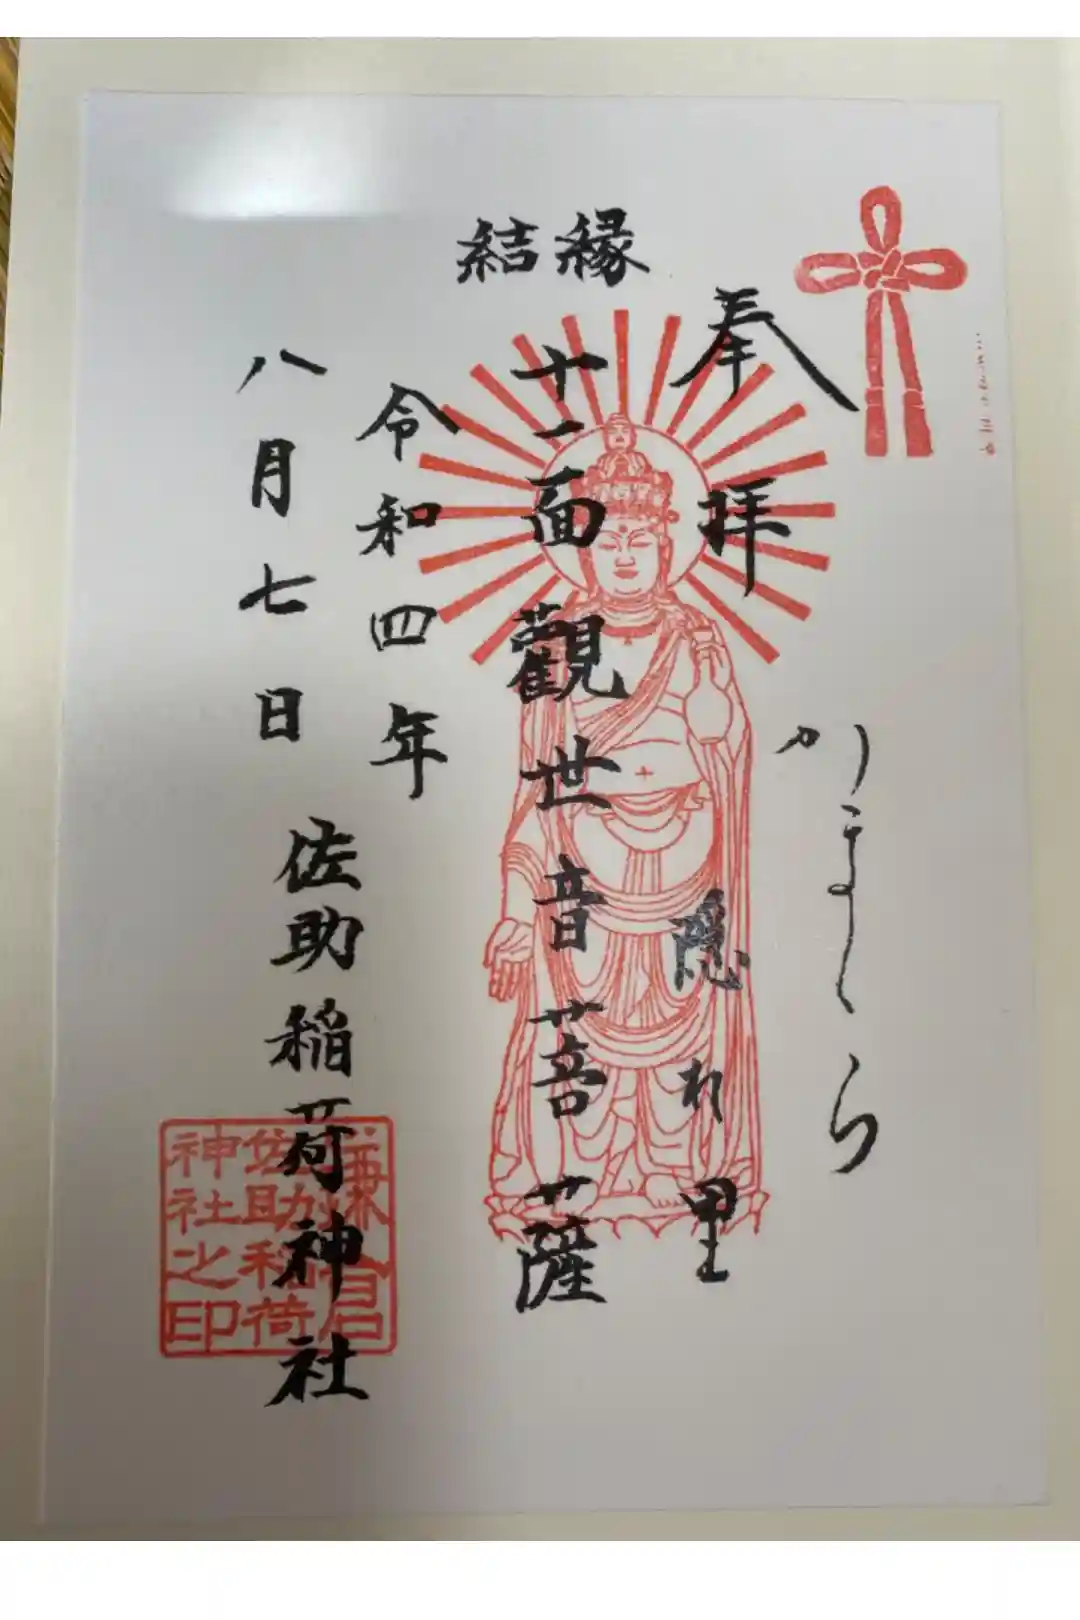 縁結
奉拝
かまくら
隠れ里
十一面觀世音菩薩
令和四年
八月七日
佐助稲荷神社
鎌倉
佐助稲荷
神社之印